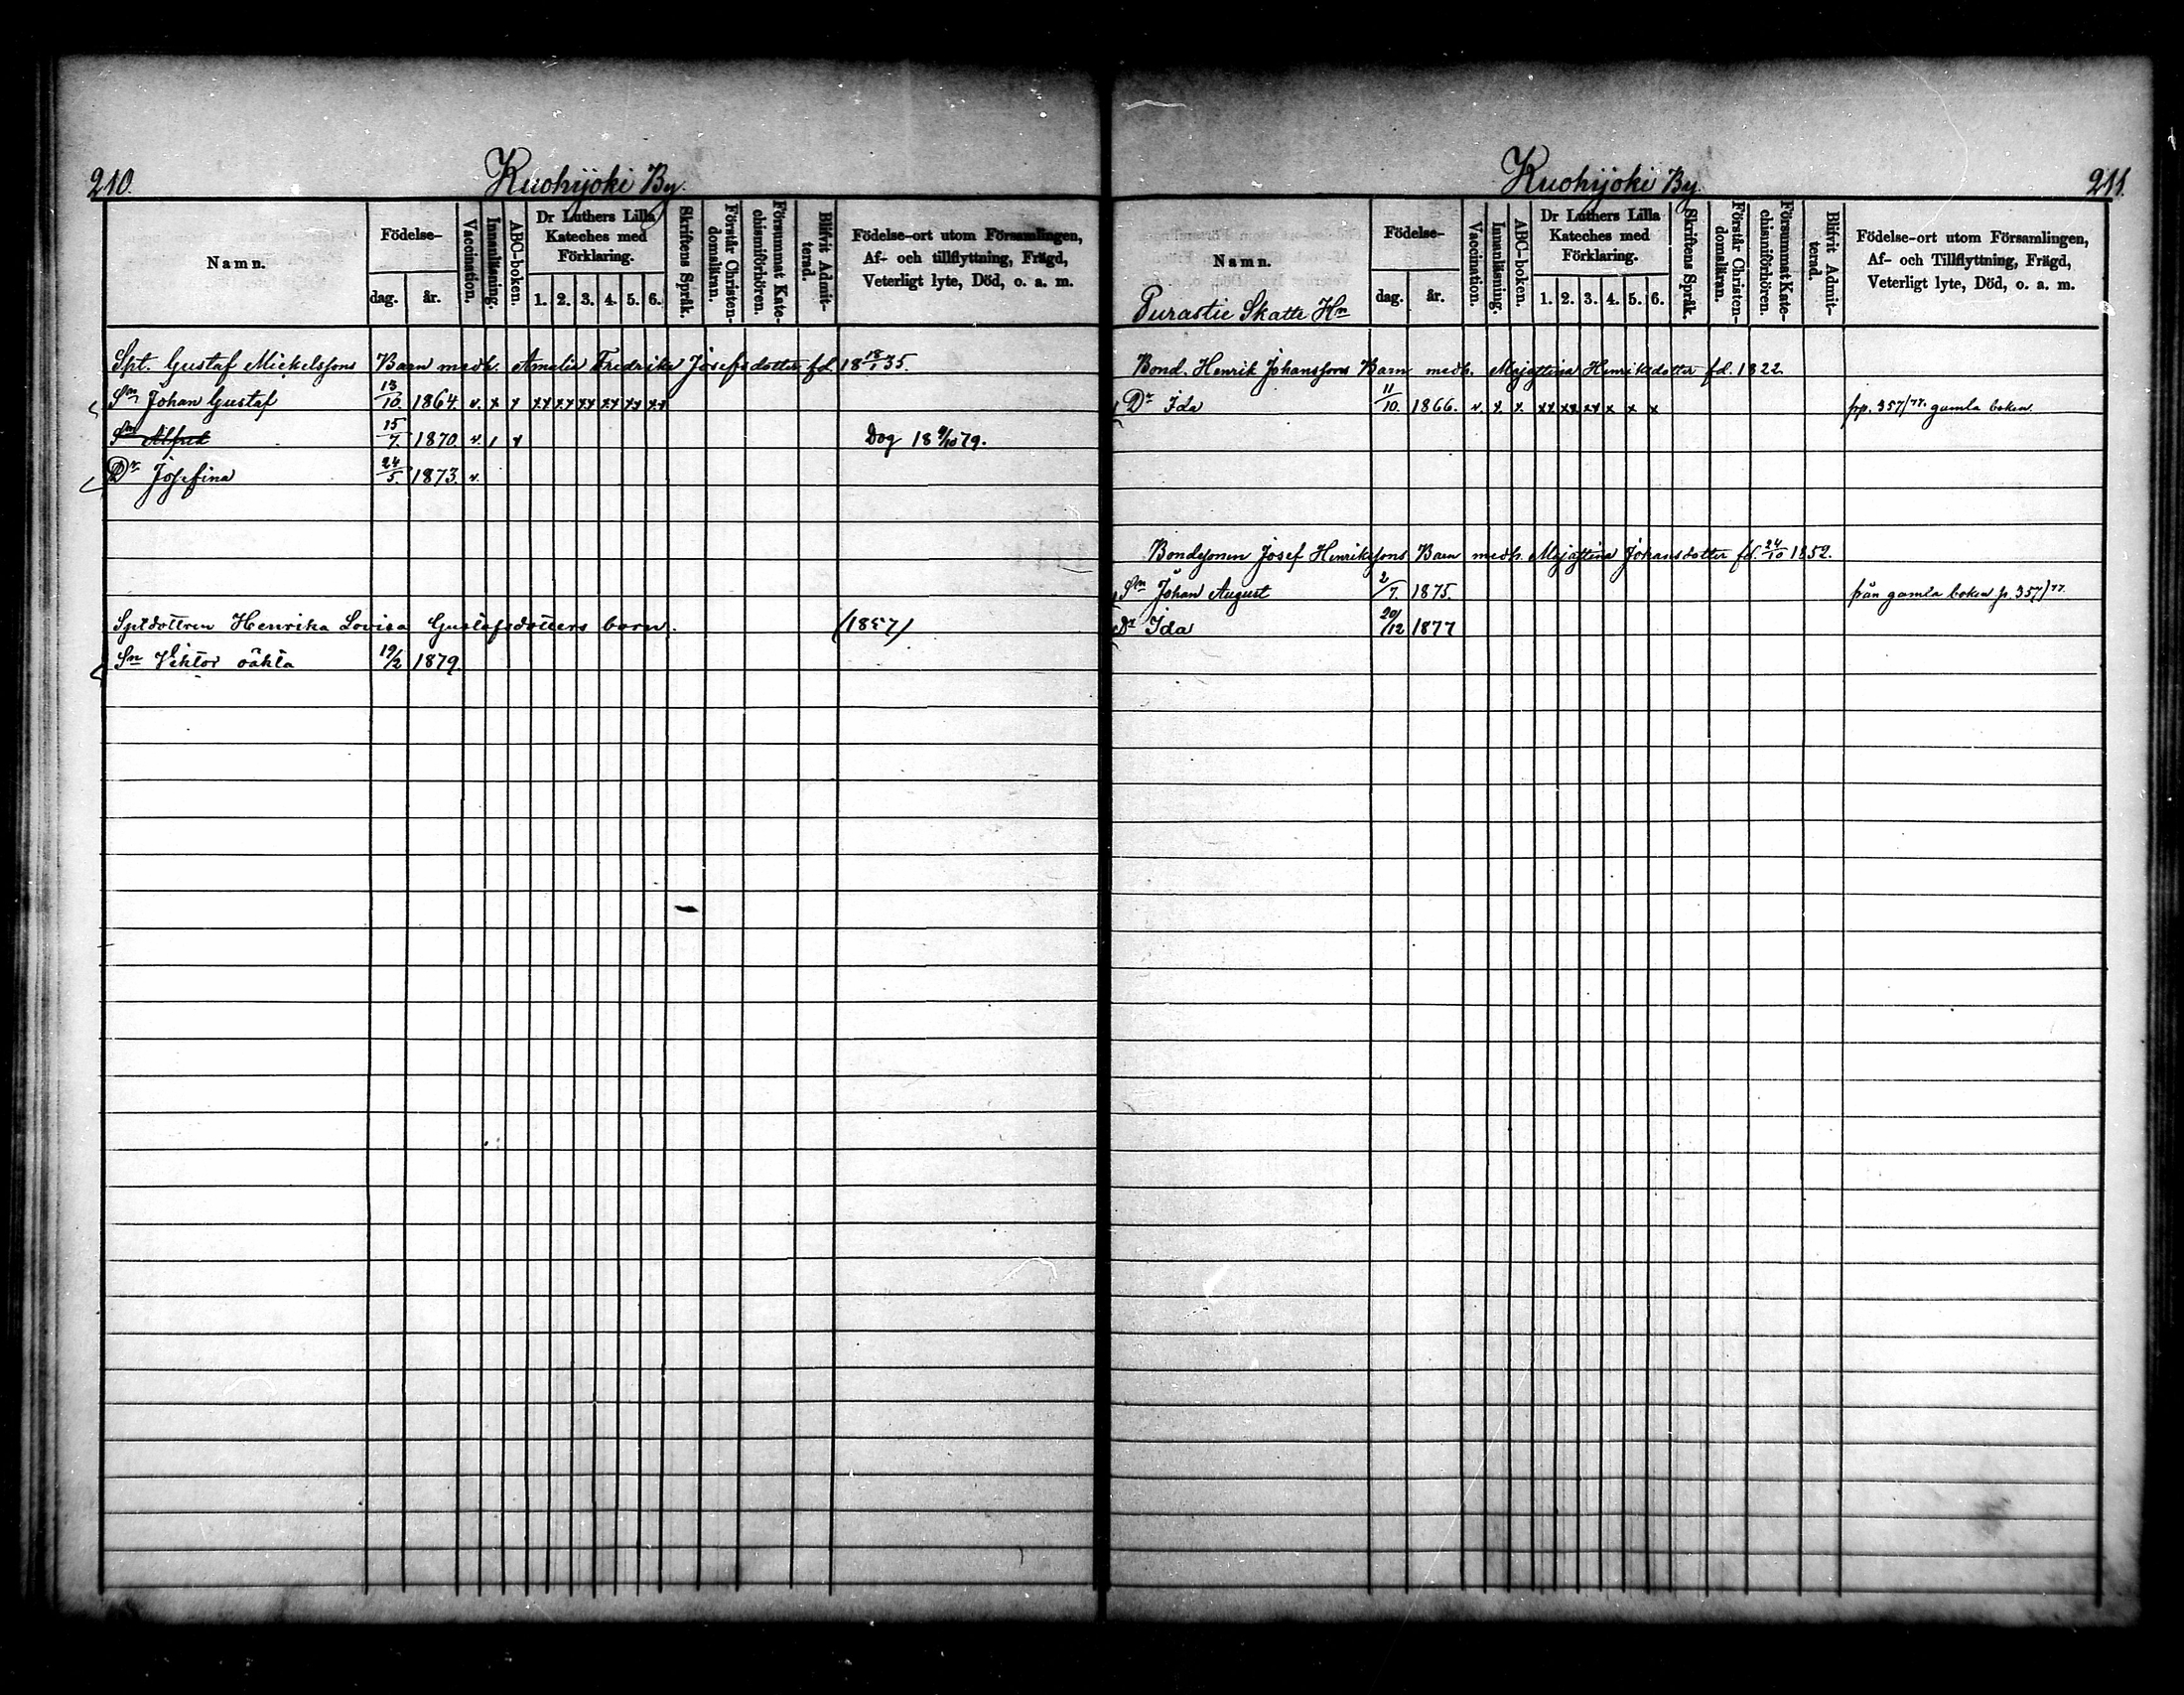 210.
Kuohijoki By.
Namn.
Födelse-
dag.
år.
Vaccination.
Innanläsning.
ABC-boken.
Dr Luthers Lilla
Kateches med
Förklaring.
1. 2. 3. 4. 5. 6.
Skriftens Språk.
Förstår Christen-
domsläran.
Försummat Kate-
chismiförhören.
Blifvit Admit-
terad.
Födelse-ort utom Församlingen,
Af- och tillflyttning, Frägd,
Veterligt lyte, Död, o. a. m.
Spt. Gustaf Mickelssons Barn med h. Amalia Fredrika Josefsdotter fd. 18 18/1 35.
Sn Johan Gustaf 13/10. 1864. v. x x xx xx xx xx xx xx
Sn Alfred 15/7. 1870. v. 1 x Dog 18 9/10 79.
Dr Josefina 24/5. 1873. v.
Sptdottren Henrika Lovisa Gustafsdotters barn. (1857)
Sn Viktor oäkta 19/2 1879.
Kuohijoki By.
211.
Namn.
Födelse-
dag.
år.
Vaccination.
Innanläsning.
ABC-boken.
Dr Luthers Lilla
Kateches med
Förklaring.
1. 2. 3. 4. 5. 6.
Skriftens Språk.
Förstår Christen-
domsläran.
Försummat Kate-
chismiförhören.
Blifvit Admit-
terad.
Födelse-ort utom Församlingen,
Af- och Tillflyttning, Frägd,
Veterligt lyte, Död, o. a. m.
Purastie Skatte Hn
Bond. Henrik Johanssons Barn med h. Majastina Henriksdotter fd. 1822.
Dr Ida 11/10. 1866. v. x. x. xx xx xx x x x frp. 357/77. gamla boken.
Bondsonen Josef Henrikssons Barn med h. Majastina Johansdotter fd. 24/10 1852.
Sn Johan August 2/7. 1875. från gamla boken p. 357/77.
Dr Ida 20/12 1877